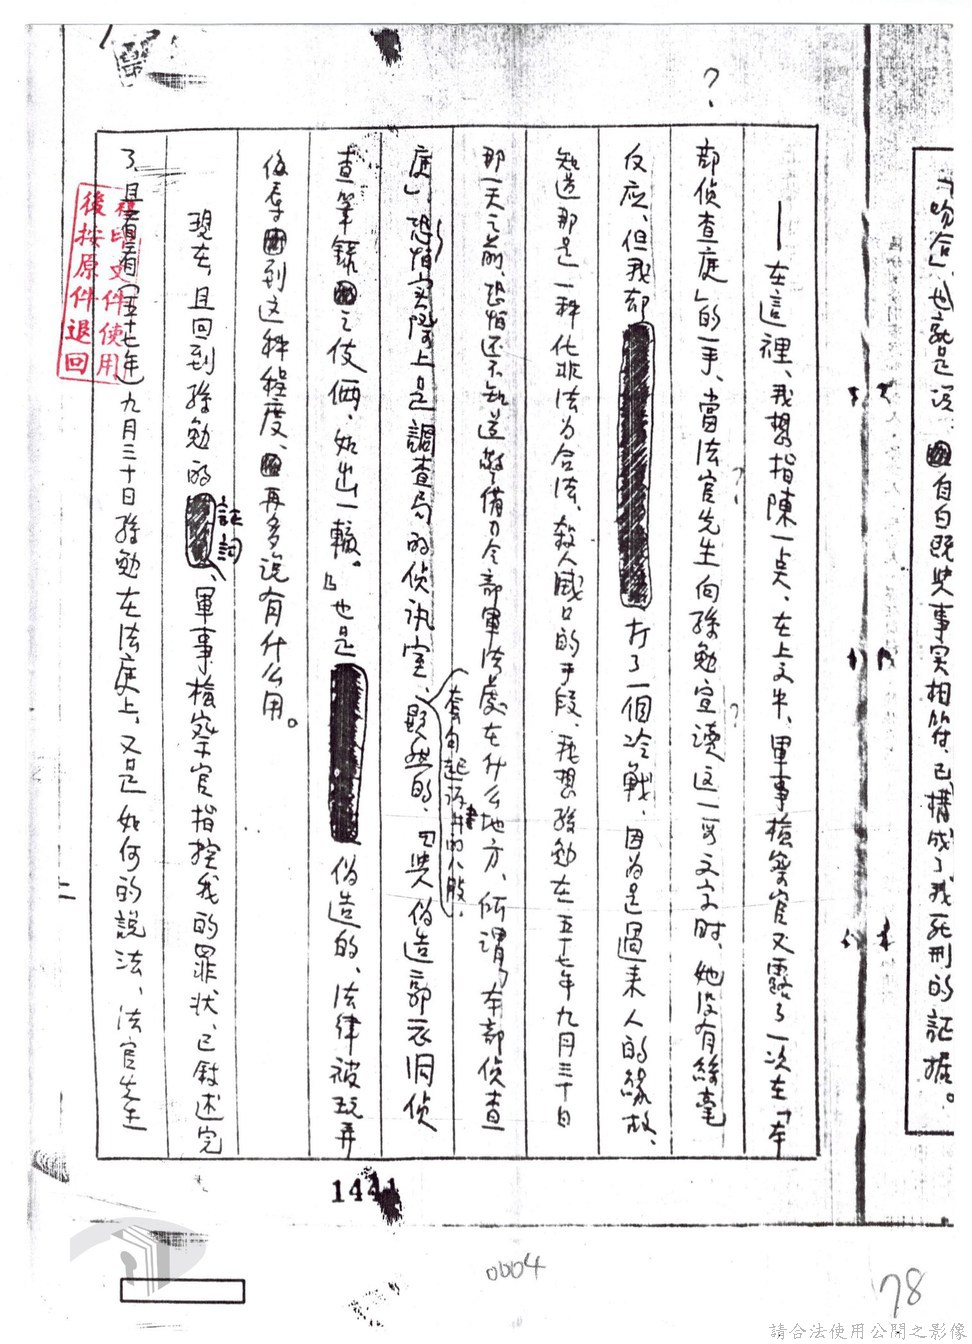 「吻合」，也就是说，自白既與事实相符，已構成了我死刑的証据。
——在這裡，我想指陳一点，在上文中，軍事檢察官又露了一次在「本
部侦查庭」的一手，當法官先生向孫勉宣读这一可文字时，她没有絲毫
反应，但我却打了一個冷戰，因为是過来人的緣故，
知道那是一种化非法为合法、殺人滅口的手段，我想孫勉在五十七年九月三十日
那一天之前，恐怕还不知道警備司令部軍法處在什么地方，所謂「本部侦查
庭」，恐怕实際上是調查局的侦讯室，显然的，與伪造郭衣洞侦
套句起诉書的八股，
查笔録之伎俩，如出一轍。」也是伪造的，法律被玩弄
後辱到这种程度，再多说有什么用。
現在，且回到孫勉的証詞，軍事檢察官指控我的罪状，已敍述完
了，且看看（五十七年）九月三十日孫勉在法庭上，又是如何的說法，法官先生
？
？
？
複印文件使用
後按原件退回
二
1441
0004
78
請合法使用公開之影像